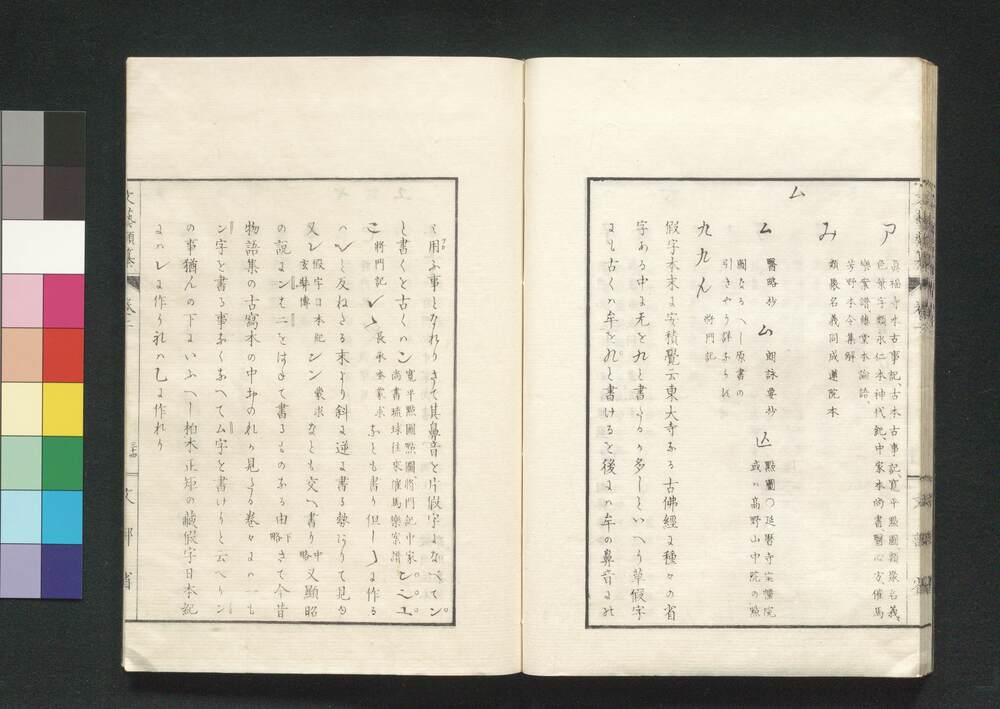 ア
眞福寺本古事記、古本古事記、寛平點圖類聚名義、
色葉字類永仁本神代紀、中家本尚書、醫心方、催馬
樂案譜傳堂本論語、
芳野本令集解
み
類聚名義同成蓮院本
ム
ム
醫略抄
ム
朗詠要抄
點圖〇延暦寺宝幢院
或ハ高野山中院の點
圖なるへし原書の
引きやう詳ならす
九九
將門記
假字本末に字積覺云東大寺なる古佛經に種々の省
字ある中に无を九と書たるか多しといへり草假字
にも古くハ牟を と書けるを後にハ牟の鼻音にの
ミ用ふ事となれりさて其鼻音を片假字になべてン
と書くを古くハン
寛平點圖點圖、將門記中家
尚書琉球往來催馬樂案譜
將門記
レ
長承本蒙求
なとも書り但し に作る
ハ レと反ねたる末より斜に逆に書る勢ありて見ゆ
又レ
假字日本紀
玄奘傳
ンン
蒙求
なとも交へ書り中略又顯昭
の説にンもニをはねて書るものなる由下略さて今昔
物語集の古寫本の中 のれか見たる卷々にハ一も
ン字を書る事なくなへてム字を書けりと云へりン
の事猶んの下にいふへし柏木正矩の藏假字日本紀
にハレに作り礼ハ乙に作れり
文藝類纂
卷二
三十四
文部省